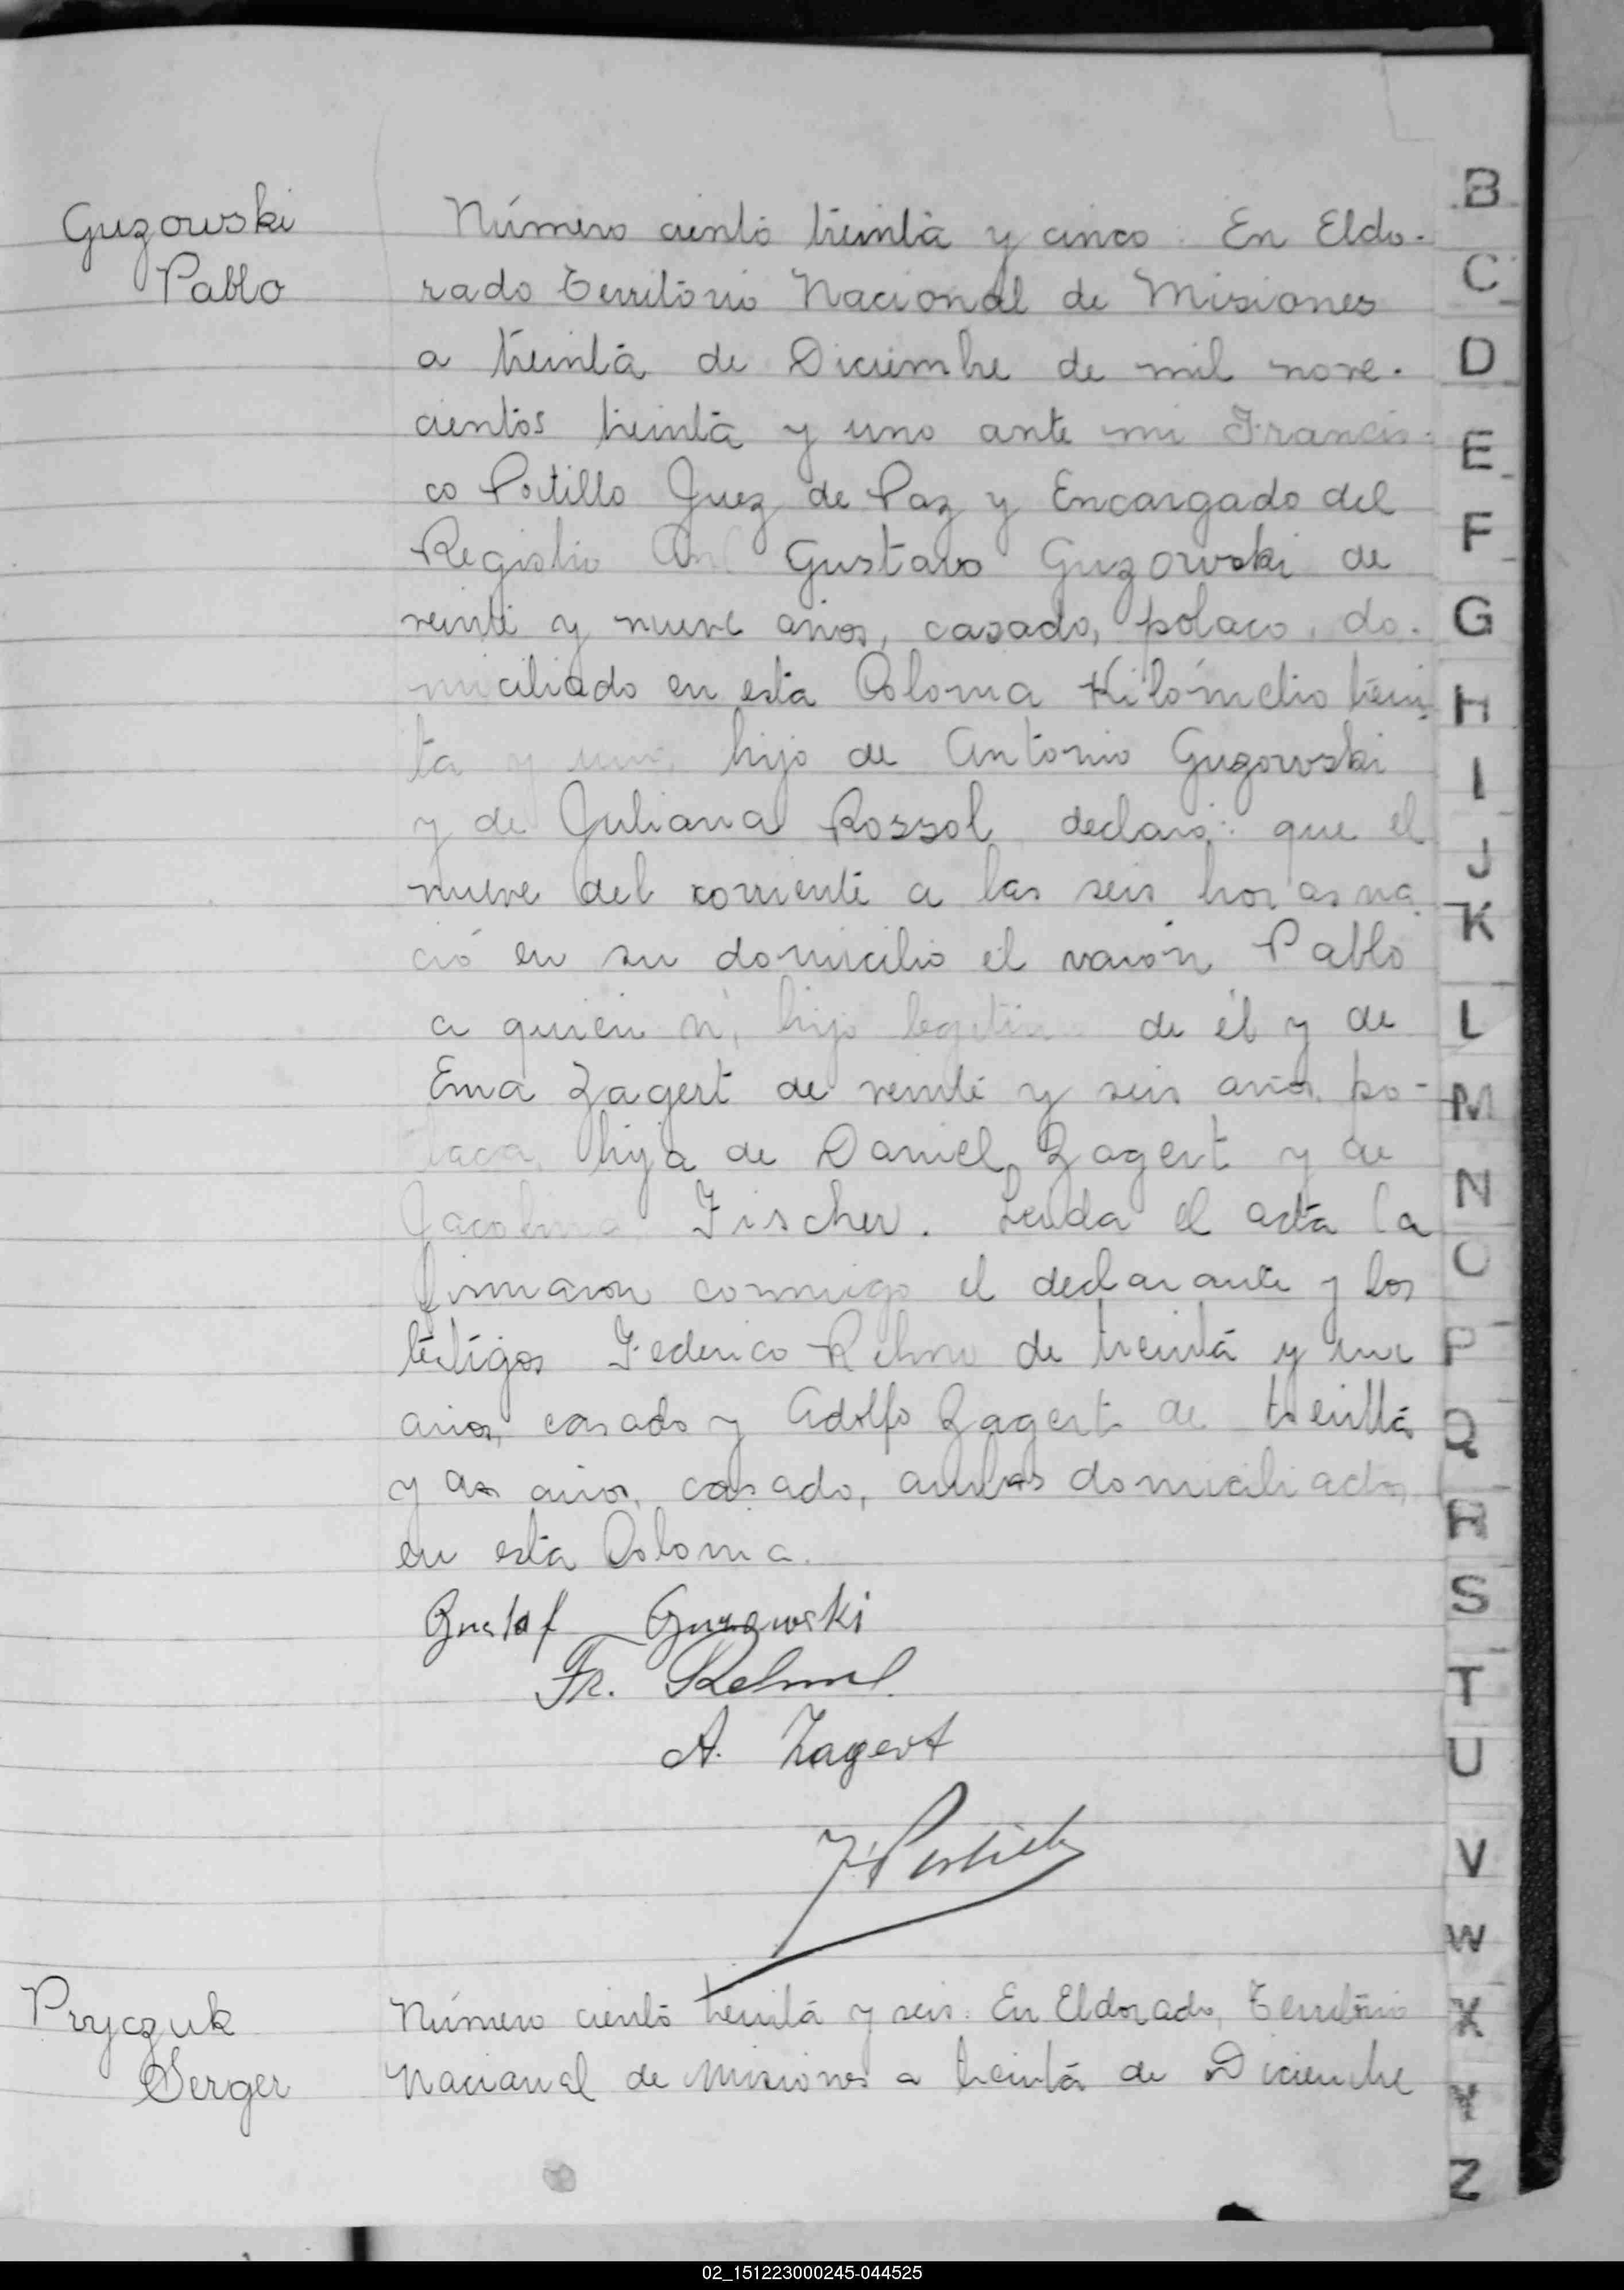 Guzowski
Pablo
Número ciento treinta y cinco. En Eldo-
rado Territorio Nacional de Misiones
a treinta de Diciembre de mil nove-
cientos treinta y uno ante mi Francis-
co Portillo Juez de Paz y Encargado del
Registro Gustavo Guzowski de
veinte y nueve años, casado, polaco, do-
miciliado en esta Colonia Kilómetro trein-
ta y uno, hijo de Antonio Guzowski
y de Juliana Rossol declaró: que el
nueve del corriente a las seis horas na-
ció en su domicilio el varón Pablo
a quien ví, hijo legitimo de él y de
Ema Zagert de veinte y seis años, po-
laca, hija de Daniel Zagert y de
Jacobina Fischer. Leida el acta la
firmaron conmigo el declarante y los
testigos Federico Rehm de treinta y un
años, casado y Adolfo Zagert de treinta
y dos años, casado, ambos domiciliados
en esta Colonia.
Gustaf Guzowski
Fr. Rehm
A. Zagert
F Portillo
Pryczuk
Serger
Número ciento treinta y seis. En Eldorado, Territorio
Nacional de Misiones a treinta de Diciembre
B
C
D
E
F
G
H
I
J
K
L
M
N
O
P
Q
R
S
T
U
V
W
X
Y
Z
02_151223000245-044525